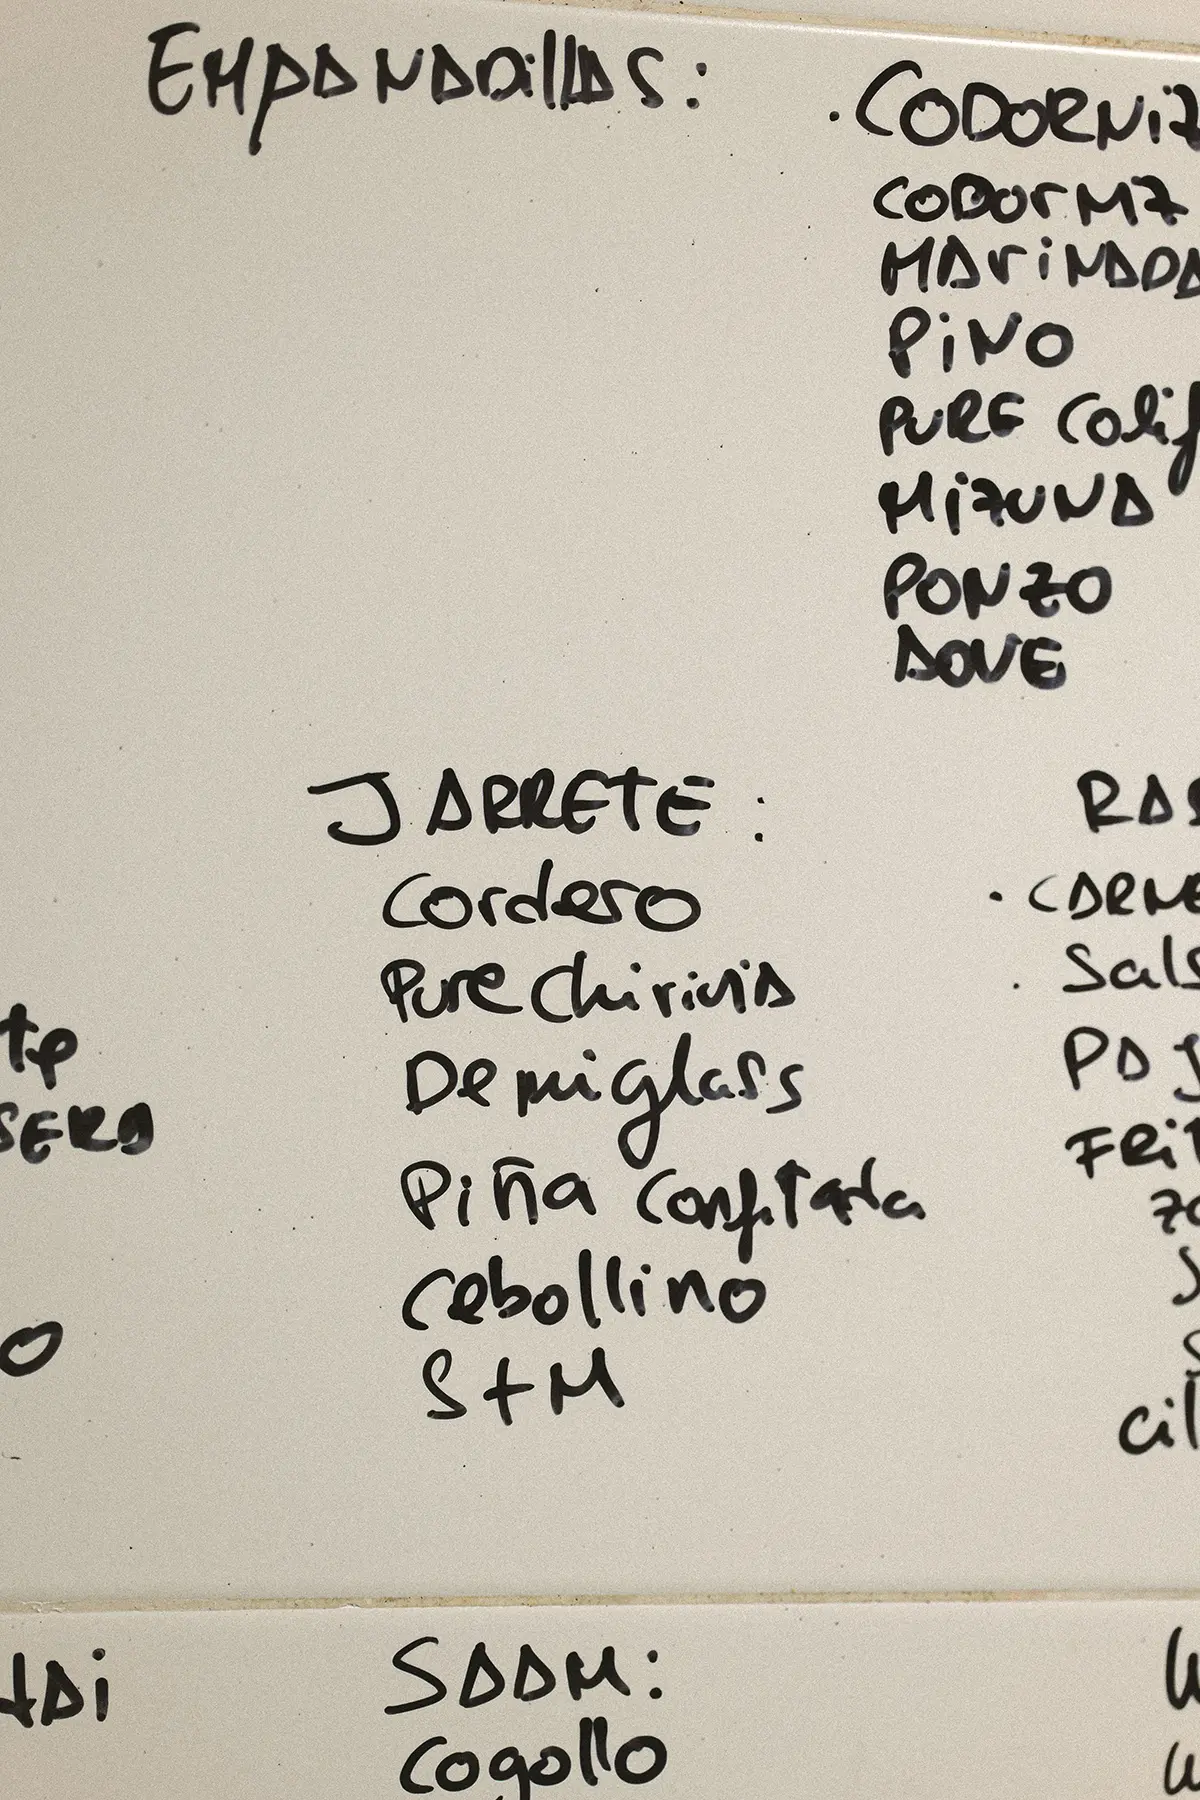 EMPANADillAS:
. CODORNiZ
CODOrMZ
MAriNADA
PiNO
PURE Colif
MiZUNA
PONZO
AOVE
JARRETE:
Cordero
Pure Chirivia
Demiglass
Piña Confitada
Cebollino
S+M
. CARNE
. Sals
FRiT
SERA
SAAM:
Cogollo